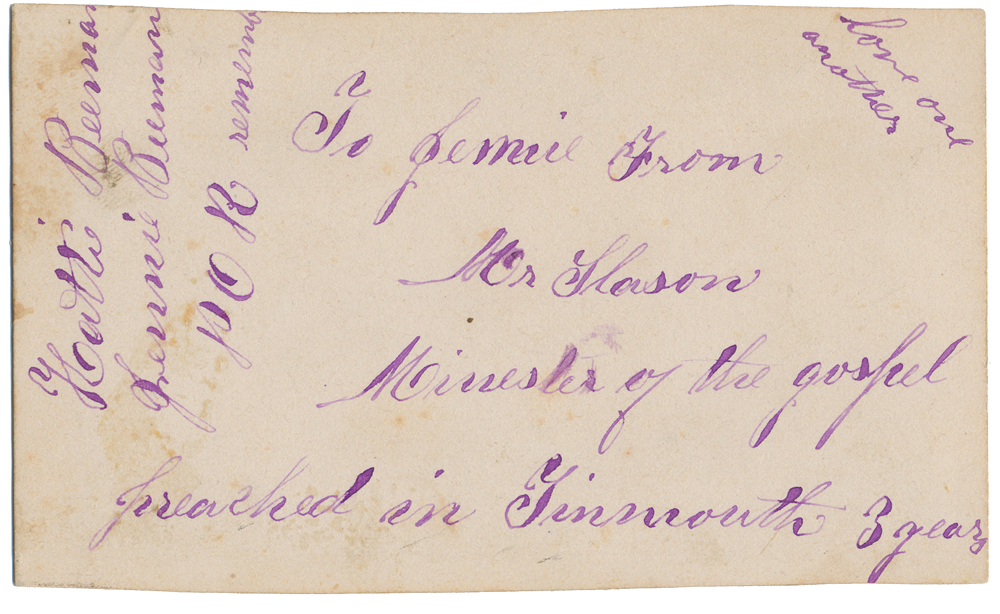 To Jennie From
Mr Slason
Minester of the gospel
preached in Tinmouth 3 years
love one
another
Hattie Beeman
Jennie Beeman
P O R rememb